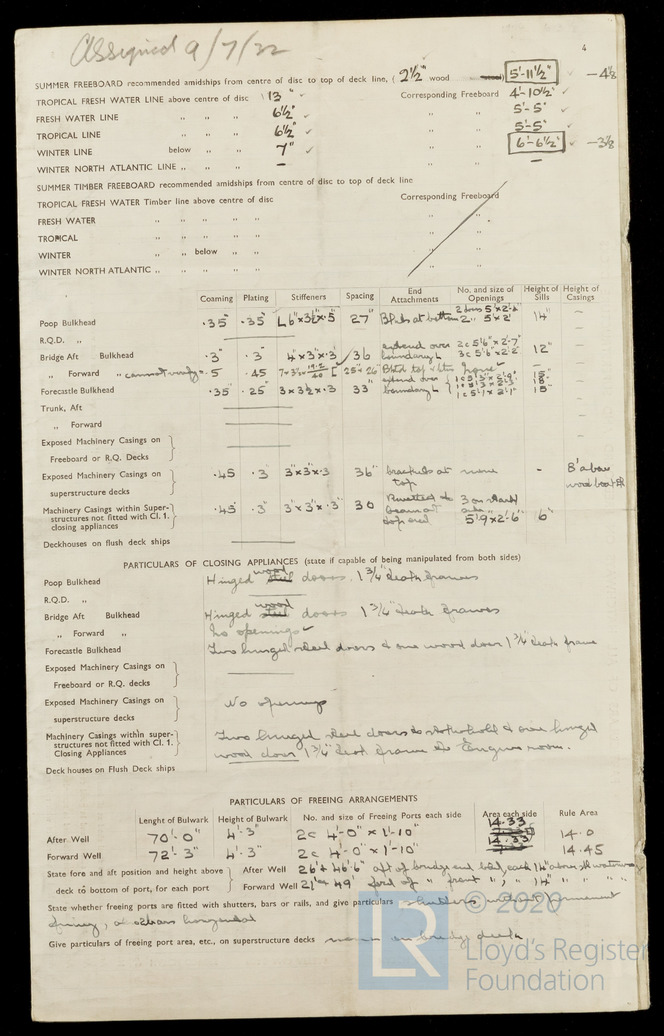 Assigned 9/7/32
4
SUMMER FREEBOARD recommended amidships from centre of disc to top of deck line, ( 2½" wood 5'-11½" -4⅛
TROPICAL FRESH WATER LINE above centre of disc 13" Corresponding Freeboard 4'-10½"
FRESH WATER LINE ,, ,, ,, 6½" ,, ,, 5'-5"
TROPICAL LINE ,, ,, ,, 6½" ,, ,, 5'-5"
WINTER LINE below ,, ,, 7" ,, ,, 6'-6½" -3⅛
WINTER NORTH ATLANTIC LINE ,, ,, ,, – ,, ,, –
SUMMER TIMBER FREEBOARD recommended amidships from centre of disc to top of deck line
TROPICAL FRESH WATER Timber line above centre of disc Corresponding Freeboard
FRESH WATER ,, ,, ,, ,, ,, ,,
TROPICAL ,, ,, ,, ,, ,, ,,
WINTER ,, below ,, ,, ,, ,,
WINTER NORTH ATLANTIC ,, ,, ,, ,, ,, ,,
Coaming Plating Stiffeners Spacing End Attachments No. and size of Openings Height of Sills Height of Casings
Poop Bulkhead .35" .35" L6"x3½"x.5" 27" Bkts at bottom 2 doors 5'x2'-6" 2 5'x2' 14" –
R.Q.D. ,,
Bridge Aft Bulkhead .3" .3" 4"x3"x.3" 36 extend over boundary L 2c 5'6"x2'-7" 3c 5'6"x2'2" 12" –
,, Forward ,, cannot verify .5 .45 25" 26" none –
Forecastle Bulkhead .35" .25" 3x3½x.3 33" extend over boundary L 15" 18" 15" –
Trunk, Aft
,, Forward
Exposed Machinery Casings on
Freeboard or R.Q. Decks
Exposed Machinery Casings on
superstructure decks .45 .3" 3"x3"x.3 36" brackets at top none – 8' above wood boat dk
Machinery Casings within Super-
structures not fitted with Cl. 1.
closing appliances .45" .3" 3"x3"x.3" 30 5'9x2'-6" 6"
Deckhouses on flush deck ships
PARTICULARS OF CLOSING APPLIANCES (state if capable of being manipulated from both sides)
Poop Bulkhead Hinged wood doors. 1¾" teak frames
R.Q.D. ,,
Bridge Aft Bulkhead Hinged wood doors 1¾" teak frames
,, Forward ,, No openings
Forecastle Bulkhead Two hinged steel doors & one wood door 1¾" teak frame
Exposed Machinery Casings on
Freeboard or R.Q. decks
Exposed Machinery Casings on
superstructure decks No openings
Machinery Casings within super-
structures not fitted with Cl. 1.
Closing Appliances Two hinged steel doors to stokehold & one hinged
wood door 1¾" teak frame to Engine room.
Deck houses on Flush Deck ships
PARTICULARS OF FREEING ARRANGEMENTS
Lenght of Bulwark Height of Bulwark No. and size of Freeing Ports each side Area each side Rule Area
After Well 70'-0" 4'-3" 2c 4'-0" x 1'-10" 14.33 14.0
Forward Well 72'-3" 4'-3" 2c 4'-0" x 1'-10" 14.33 14.45
State fore and aft position and height above After Well 26' & 46'6" aft of bridge end bhd, each 14" above dk waterway
deck to bottom of port, for each port Forward Well 21' & 49' ford of ,, front ,, ,, 14" ,, ,, ,,
State whether freeing ports are fitted with shutters, bars or rails, and give particulars shutters without permanent
Give particulars of freeing port area, etc., on superstructure decks none on bridge deck
© 2020
LR Lloyd's Register
Foundation